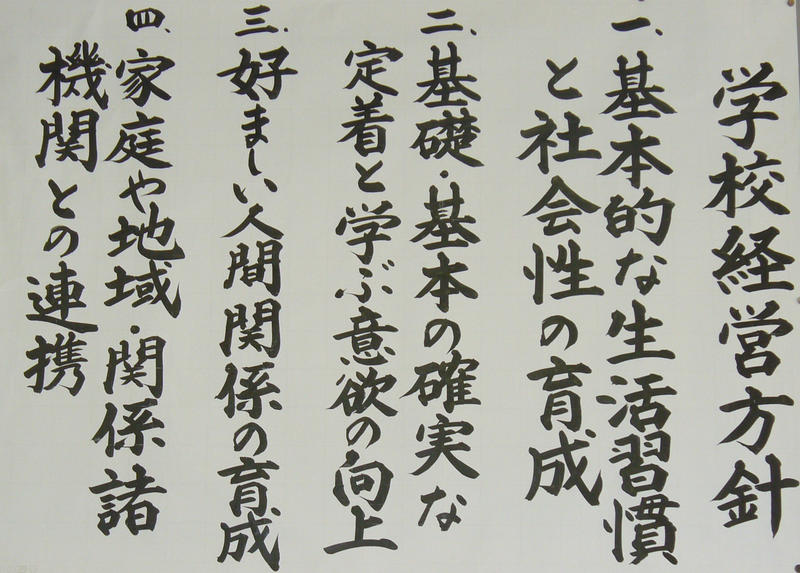 学校経営方針
一、基本的な生活習慣
と社会性の育成
二、基礎・基本の確実な
定着と学ぶ意欲の向上
三、好ましい人間関係の育成
四、家庭や地域・関係諸
機関との連携